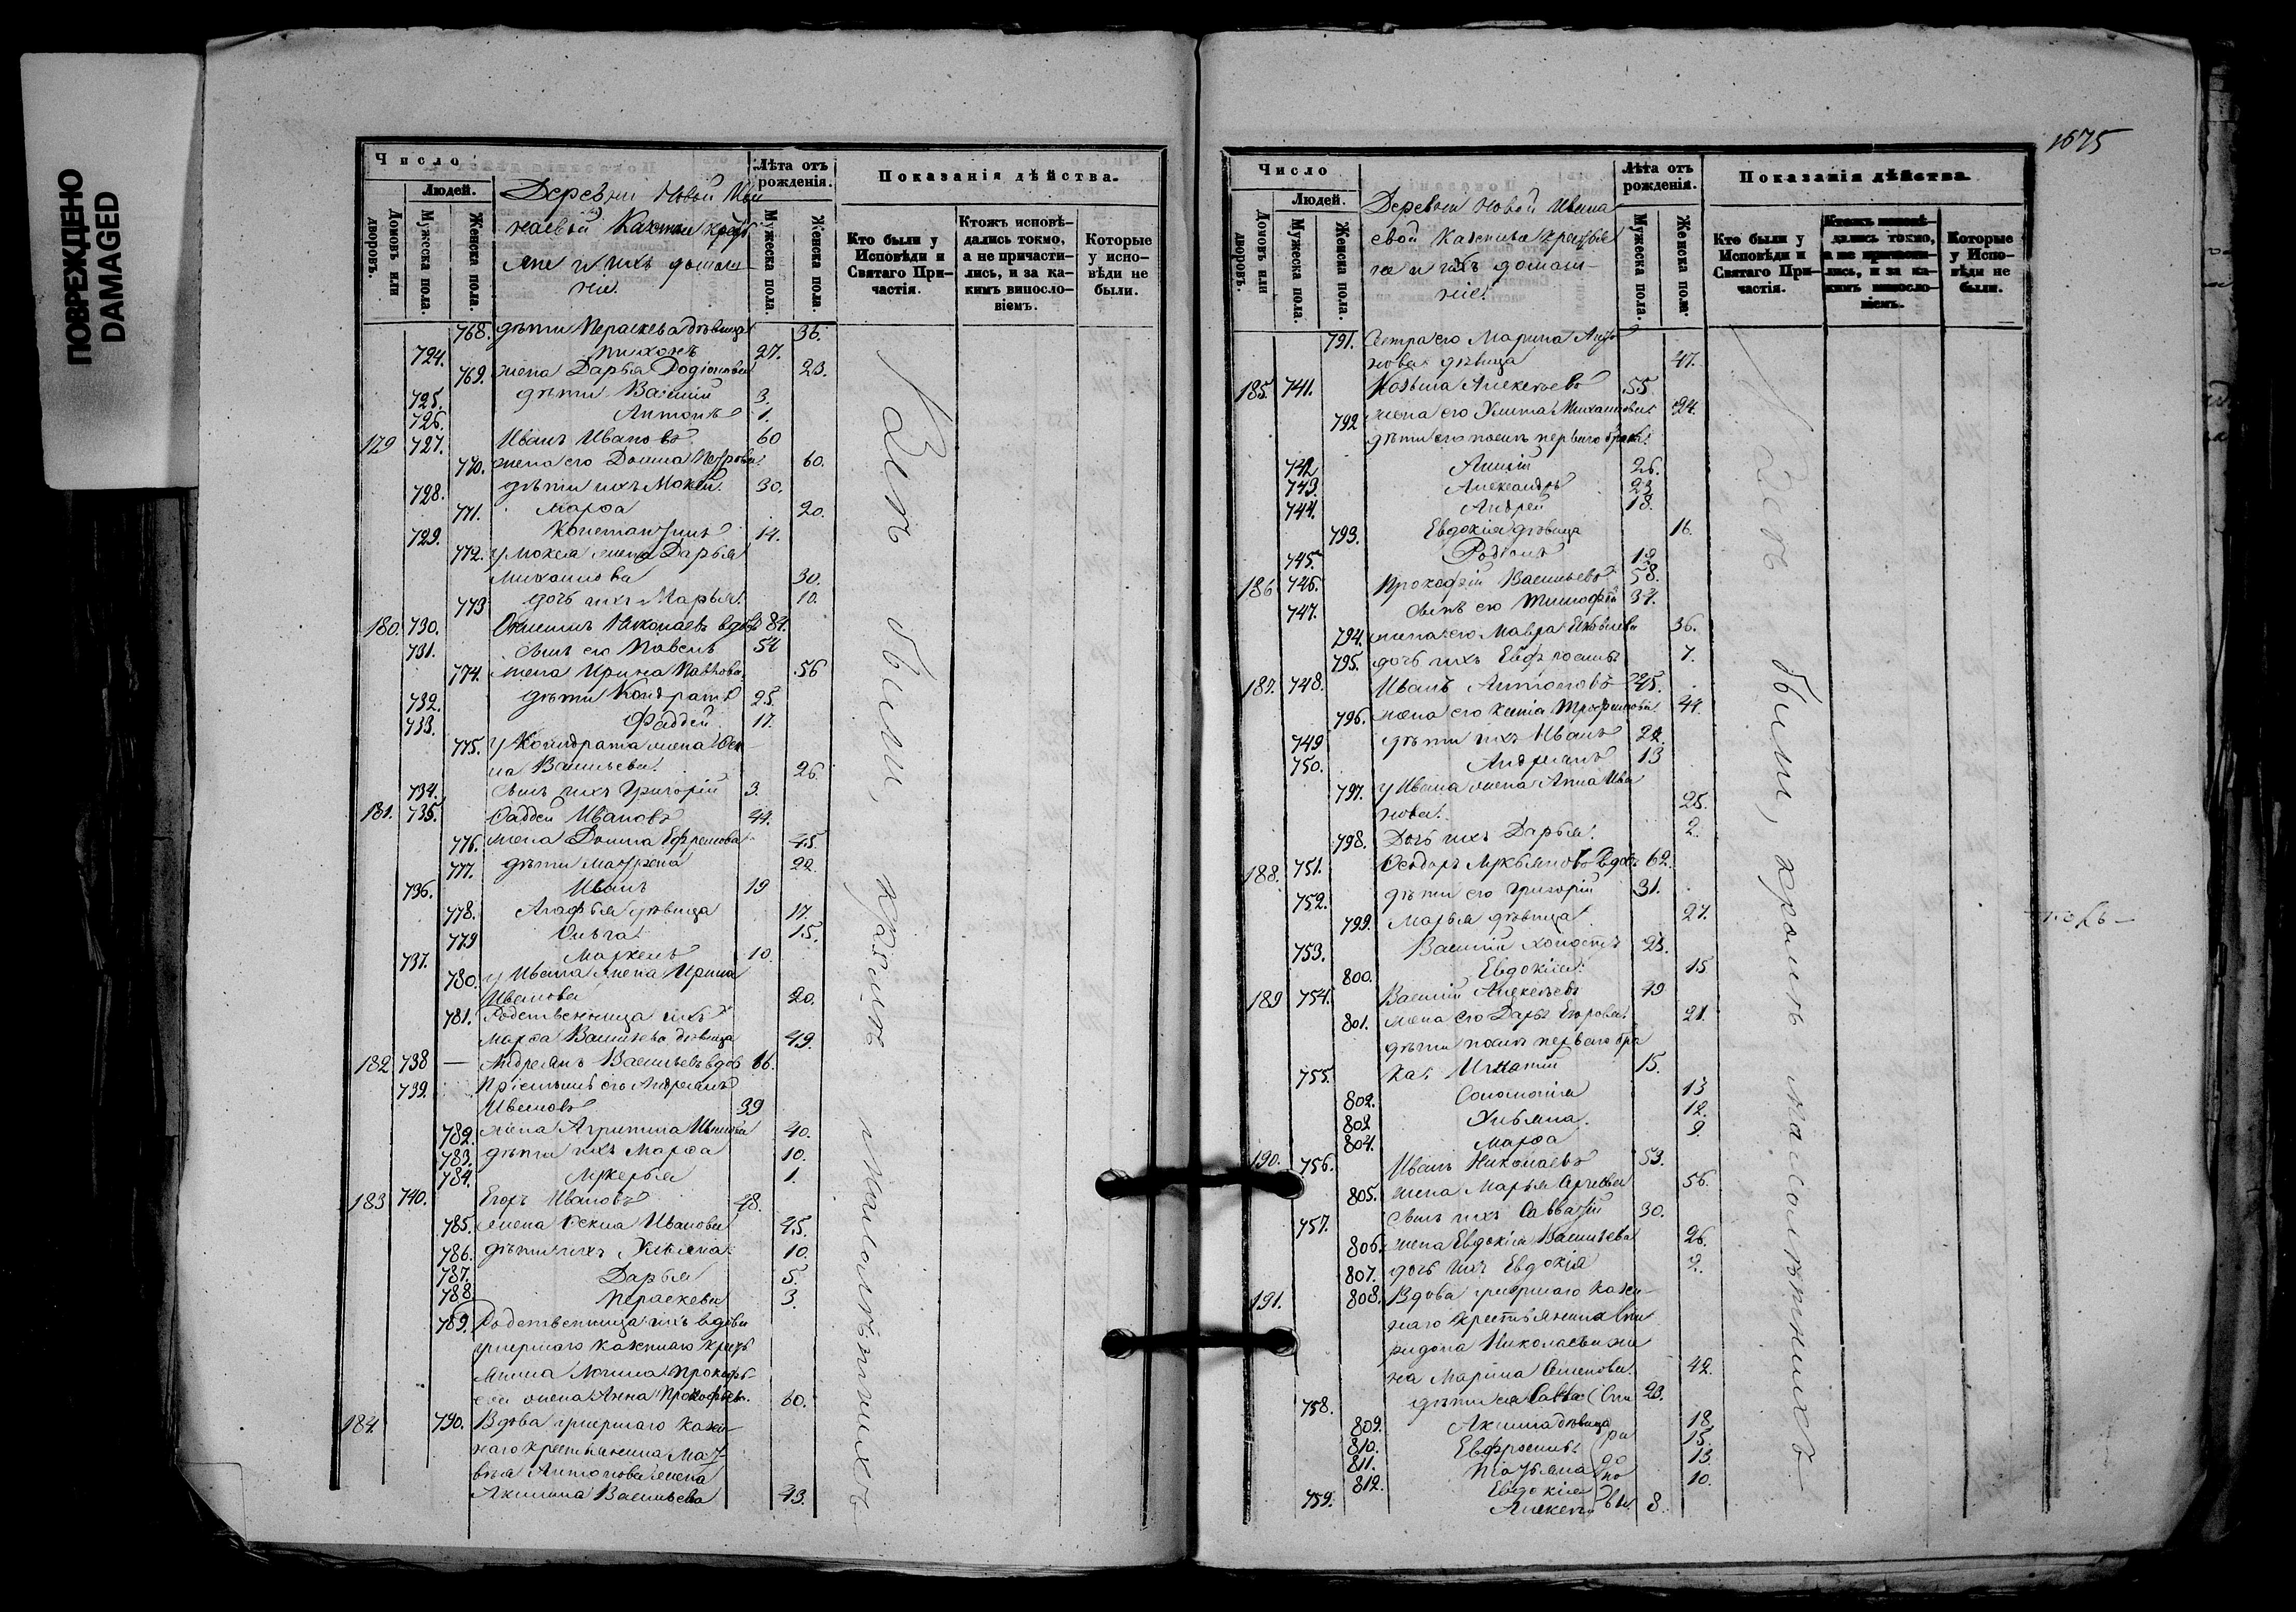 ПОВРЕЖДЕНО
DAMAGED
Число
Людей.
Домовъ или дворовъ.
Мужеска пола.
Женска пола.
Деревни Новой Ива
наевой Казенные кресть
яне и ихъ домаш-
ніе.
Лѣта отъ рожденія.
Мужеска пола.
Женска пола.
Показанія дѣйства.
Кто были у Исповѣди и Святаго Причастія.
Ктожъ исповѣдались токмо, а не причастились, и за какимъ винословіемъ.
Которые у исповѣди не были.
768. дѣти Параскева дѣвица 36.
724. Тихонъ 27.
769. жена Дарья Родіонова 23.
725. дѣти Василій 3.
726. Антонъ 1.
179 727. Иванъ Ивановъ 60
770. жена его Домна Петрова 60.
728. дѣти ихъ Мокей. 30.
771. Марѳа 20.
729. Константинъ 14.
772. у Мокея жена Дарья
Михаилова 30.
773 дочь ихъ Марья. 10.
180. 730. Николаевъ вдовъ 84.
731. сынъ его Павелъ 54
774. жена Ирина Павлова. 56
732. дѣти Кондратъ 25.
733. Фаддей. 17.
775. у Кондрата жена Ѳек-
ла Васильева. 26.
734. сынъ ихъ Григорій 3.
181. 735. Ѳаддей Ивановъ 44.
776. жена Домна Ефремова 45.
777. дѣти Матрена 22.
736. Иванъ 19
778. Агафья дѣвица 17.
779 Ольга 15.
737. Маркелъ 10.
780. у Ивана жена Ирина
Иванова 20.
781. Родственница ихъ
Марѳа Васильева дѣвица 49.
182 738 — Андреянъ Васильевъ вдов 66.
739. Пріемышъ его Андреянъ
Ивановъ 39
782. жена Агрипина Иванова 40.
783. дѣти ихъ Марѳа 10.
784. Лукерья 1.
183 740. Егоръ Ивановъ 48.
785. жена Ѳекла Иванова 45.
786. дѣти ихъ Ульяна 10.
787. Дарья 5.
788. Параскева 3.
789. Родственница ихъ вдова
умершаго казеннаго кресть
янина Прокофь-
ева жена Анна Прокофьева. 60.
184. 790. Вдова умершаго казен-
наго крестьянина Мат-
вѣя Антонова жена
Акилина Васильева 43.
Всѣ были, кромѣ малолѣтнихъ
1675
Число
Людей.
Домовъ или дворовъ.
Мужеска пола.
Женска пола.
Деревни Новой Ивана
евой Казенные крестья
не и ихъ домаш-
ніе.
Лѣта отъ рожденія.
Мужеска пола.
Женска пола.
Показанія дѣйства.
Кто были у Исповѣди и Святаго Причастія.
Ктожъ исповѣдались токмо, а не причастились, и за какимъ винословіемъ.
Которые у Исповѣди не были.
791. Сестра его Марина Анто
нова дѣвица 47.
185. 741. Козьма Алексѣевъ 55.
792 жена его Улита Михаилова 24.
дѣти его военъ перваго брака:
742 26.
743. Александръ 23.
744. Андрей 18.
793. Евдокія дѣвица 16.
745. Родіонъ 12.
186 746. Прокофій Васильевъ 58.
747. сынъ его Тимофей 37.
794. жена его Мавра Яковлева 36.
795. дочь ихъ Евфросинья 7.
187. 748. Иванъ Антоновъ 45.
796. жена его Ксенія Трофимова 44.
749 дѣти ихъ Иванъ 22.
750. Андреянъ 13
797. у Ивана жена Анна Ива
нова. 25.
798. Дочь ихъ Дарья. 2.
188. 751. Ѳеодоръ Лукьяновъ вдовъ 62.
752. дѣти его Григорій 31.
799. Марья дѣвица 27.
753. Василій холостъ 23.
800. Евдокія. 15
189 754. Василій Алексѣевъ 49
801. жена его Дарья Егорова 21.
дѣти перваго бра
755. ка: Игнатій 15.
802. Соломонія 13
802 Ульяна. 12.
804. Марѳа 9.
190. 756. Иванъ Николаевъ 53.
805. жена Марья Сергѣева 56.
757. сынъ ихъ Савватій 30.
806. жена Евдокія Васильева 26.
807. дочь ихъ Евдокія 2.
191. 808. Вдова умершаго казен-
наго крестьянина Спи
ридона Николаева же
на Марина Семенова. 42.
758. дѣти ея Савва (Спи 23.
809. Акилина дѣвица 18
810. Евфросинья (ри 15.
811. Татьяна (до 13.
812. Евдокія (но 10.
759. Алексѣй вы 8.
Всѣ были, кромѣ малолѣтнихъ —